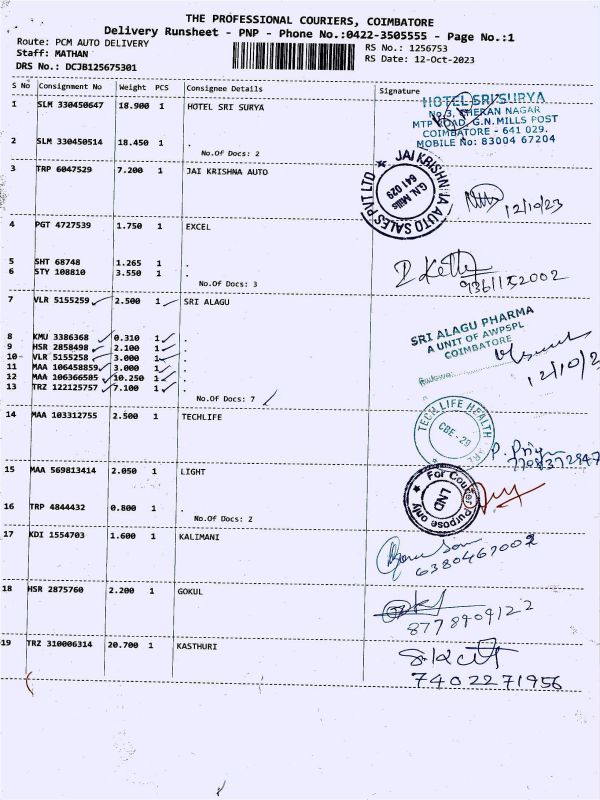 THE PROFESSIONAL COURIERS, COIMBATORE
Delivery Runsheet - PNP - Phone No.:0422-3505555 - Page No.:1
Route: PCM AUTO DELIVERY
RS No.: 1256753
Staff: MATHAN
RS Date: 12-Oct-2023
DRS No.: DCJB125675301
S No Consignment No Weight PCS Consignee Details Signature
1 SLM 330450647 18.900 1 HOTEL SRI SURYA
HOTEL SRI SURYA
No.3, THERAN NAGAR
MTP ROAD, G.N.MILLS POST
COIMBATORE - 641 029.
MOBILE No: 83004 67204
2 SLM 330450514 18.450 1 .
No.Of Docs: 2
3 TRP 6047529 7.200 1 JAI KRISHNA AUTO
JAI KRISHNA AUTO SALES PVT LTD
G.N. Mills
641 029
12/10/23
4 PGT 4727539 1.750 1 EXCEL
5 SHT 68748 1.265 1 .
6 STY 108810 3.550 1 .
No.Of Docs: 3
9361152002
7 VLR 5155259 2.500 1 SRI ALAGU
SRI ALAGU PHARMA
A UNIT OF AWPSPL
COIMBATORE
12/10/23
8 KMU 3386368 0.310 1 .
9 HSR 2858498 2.100 1 .
10 VLR 5155258 3.000 1 .
11 MAA 106458859 3.000 1 .
12 MAA 106366585 10.250 1 .
13 TRZ 122125757 7.100 1 .
No.Of Docs: 7
14 MAA 103312755 2.500 1 TECHLIFE
TECH LIFE HEALTH
CBE - 29
P. Priya
7708372847
15 MAA 569813414 2.050 1 LIGHT
For Courier Purpose only
LND
16 TRP 4844432 0.800 1 .
No.Of Docs: 2
17 KDI 1554703 1.600 1 KALIMANI
6380467002
18 HSR 2875760 2.200 1 GOKUL
8778909122
19 TRZ 310006314 20.700 1 KASTHURI
7402271956